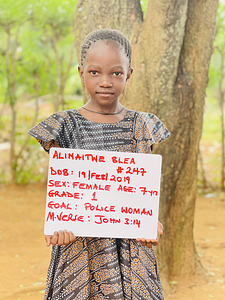 ALINAITWE BLEA
#247
DOB: 19/FEB/2019
SEX: FEMALE AGE: 7YO
GRADE: 1
GOAL: POLICE WOMAN
M.VERSE: JOHN 3:14